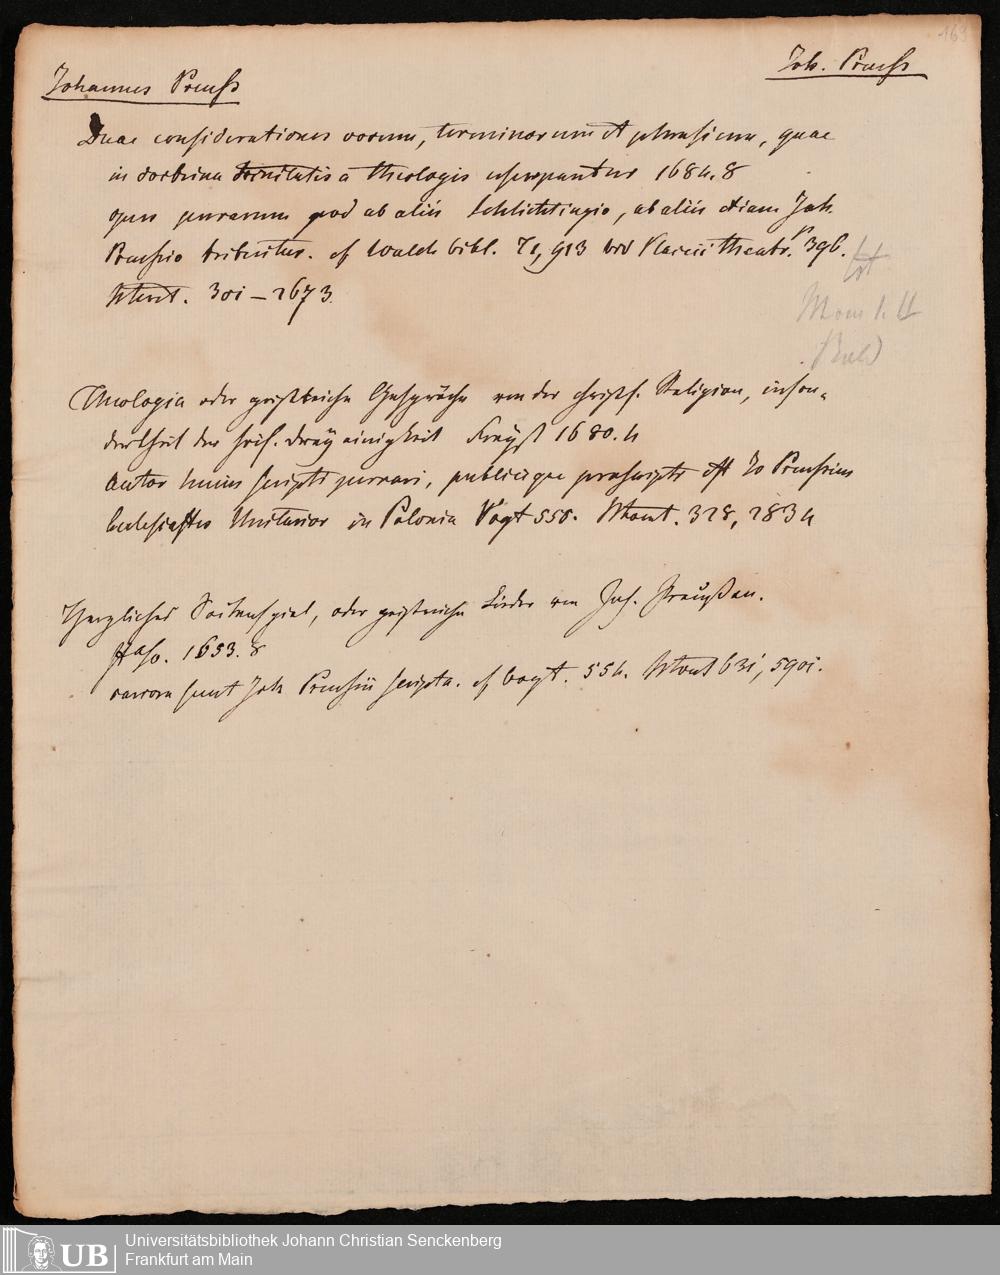 163
Joh. Preuss
Johannes Preuss
Duae considerationes vocum, terminorum et phrasium, quae
in doctrina trinitatis a theologis usurpantur 1684. 8
opus rarum quod ab aliis Schlichtingio, ab aliis etiam Joh.
Preussio tribuitur. cf Walch bibl. T1, 913 Placcii theatr. P 396.
301 – 2673.
Theologia oder geistreiche Gespräche von der christl. Religion, inson-
derheit der heil. dreyeinigkeit Freyst 1680. 4
Autor huius scripti rari, publicique est Jo Preussius
Ecclesiastes Unitarior in Polonia Vogt 550. 328, 2834
Hertzliches Saitenspiel, oder geistreiche Lieder von Joh. Preußen.
1653. 8
rariora sunt Joh Preussii scripta. cf Vogt. 554. 631, 5901.
Universitätsbibliothek Johann Christian Senckenberg
Frankfurt am Main
UB